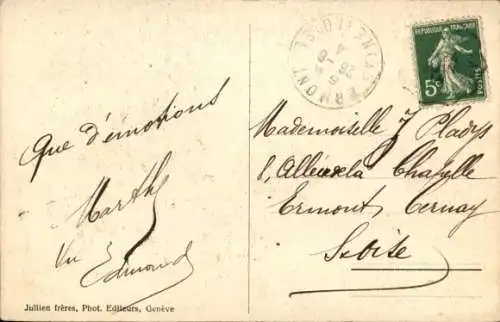 Que d'émotions
Marthe
Vu
Edmond
Jullien frères, Phot. Editeurs, Genève
REPUBLIQUE FRANÇAISE
5c
POSTES
ERMONT
SEINE ET OISE
Mademoiselle J Pladys
8, Allée de la Chapelle
Ermont Cernay
S. & Oise